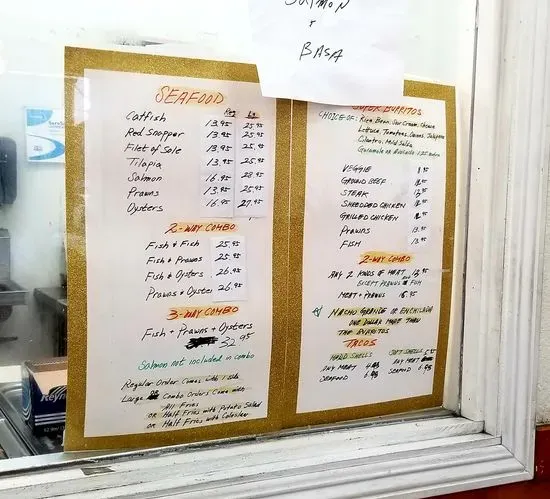 SALMON
+
BASA
SEAFOOD
Reg Lg
Catfish 13.95 25.95
Red Snapper 13.95 25.95
Filet of Sole 13.95 25.95
Tilapia 13.95 25.95
Salmon 16.95 28.95
Prawns 13.95 25.95
Oysters 16.95 27.95
2-WAY COMBO
Fish & Fish 25.95
Fish & Prawns 25.95
Fish & Oysters 26.95
Prawns & Oysters 26.95
3-WAY COMBO
Fish + Prawns + Oysters
32.95
Salmon not included in combo
Regular Order Comes with 1 side
Large Combo Orders Come with
All Fries
or Half Fries with Potato Salad
or Half Fries with Coleslaw
SUPER BURRITOS
CHOICE OF: Rice, Bean, Sour Cream, Cheese
Lettuce, Tomatoes, Onions, Jalapeno
Cilantro, Mild Salsa
Guacamole or Avocado 1.25 extra
VEGGIE
GROUND BEEF
STEAK
SHREDDED CHICKEN
GRILLED CHICKEN
PRAWNS 13.95
FISH 13.95
2-WAY COMBO
ANY 2 KINDS OF MEAT 13.95
EXCEPT PRAWNS & FISH
MEAT + PRAWNS 15.95
NACHO GRANDE OR ENCHILADA
ONE DOLLAR MORE THAN
THE BURRITOS
TACOS
HARD SHELLS SOFT SHELLS
ANY MEAT ANY MEAT
SEAFOOD 6.95 SEAFOOD 6.95
Reynolds